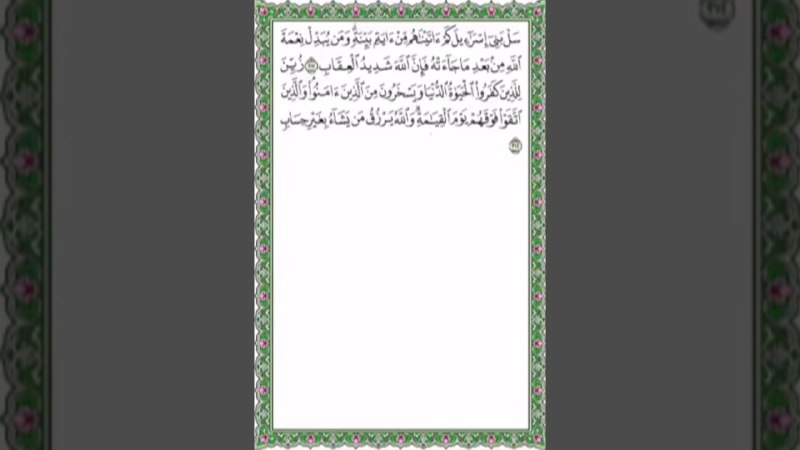 سَلْ بَنِىٓ إِسْرَٰٓءِيلَ كَمْ ءَاتَيْنَٰهُم مِّنْ ءَايَةٍۭ بَيِّنَةٍۢ ۗ وَمَن يُبَدِّلْ نِعْمَةَ
ٱللَّهِ مِنۢ بَعْدِ مَا جَآءَتْهُ فَإِنَّ ٱللَّهَ شَدِيدُ ٱلْعِقَابِ ٢١١ زُيِّنَ
لِلَّذِينَ كَفَرُوا۟ ٱلْحَيَوٰةُ ٱلدُّنْيَا وَيَسْخَرُونَ مِنَ ٱلَّذِينَ ءَامَنُوا۟ ۘ وَٱلَّذِينَ
ٱتَّقَوْا۟ فَوْقَهُمْ يَوْمَ ٱلْقِيَٰمَةِ ۗ وَٱللَّهُ يَرْزُقُ مَن يَشَآءُ بِغَيْرِ حِسَابٍۢ
٢١٢